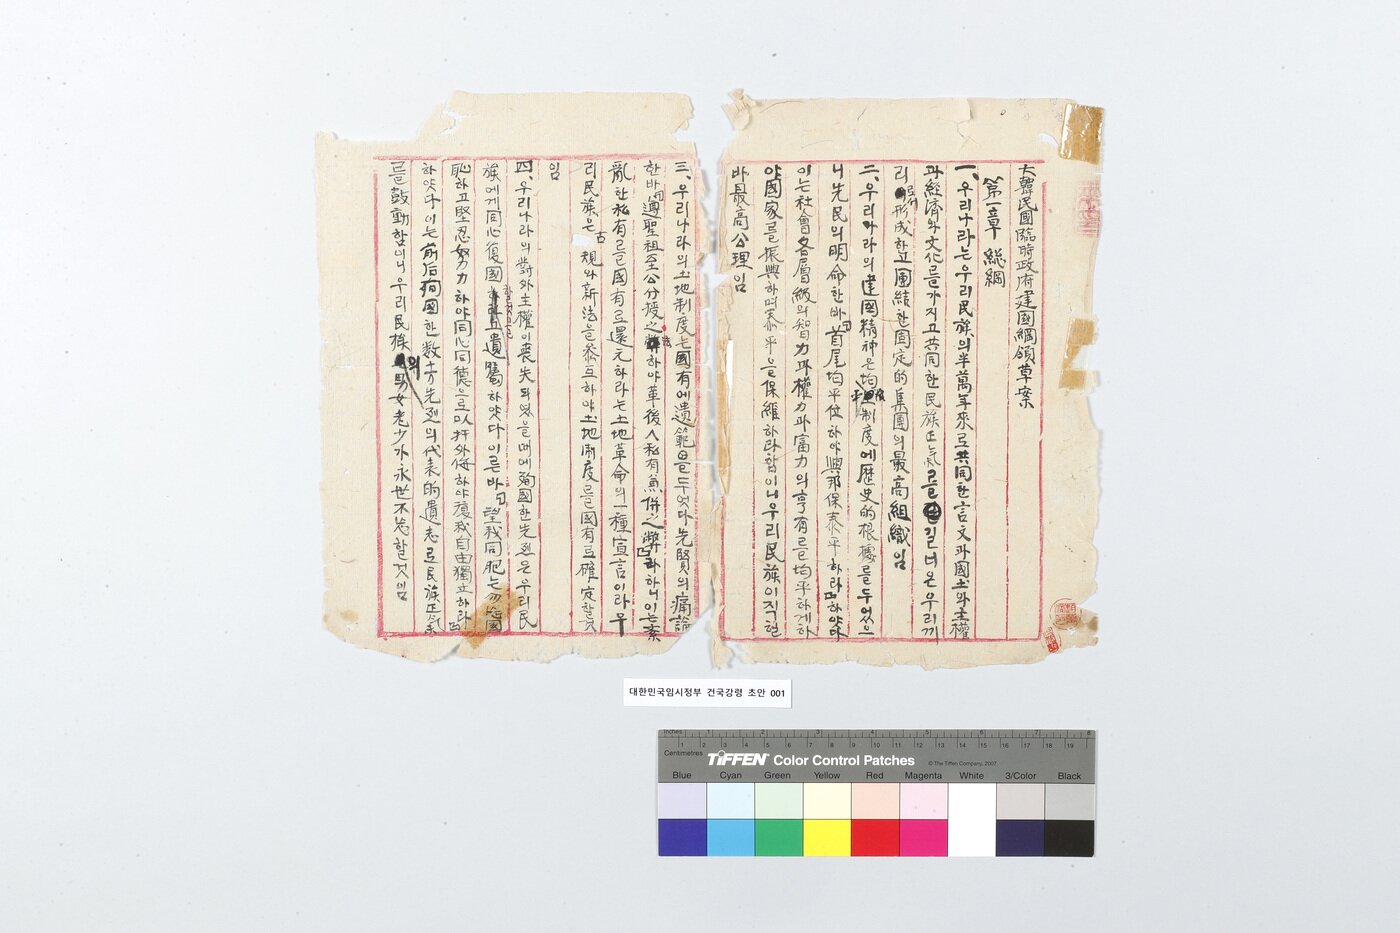 大韓民國臨時政府建國綱領草案
第一章 総綱
一、우리나라는우리民族의半萬年來로共同한言文과國土와主權
과經済와文化를가지고共同한民族正氣를길너온우리끼
리로서形成하고團結한固定的集團의最高組織임
二、우리나라의建國精神은均制度에歴史的根據를두었으
니先民의明命한바「首尾均平位하야興邦保泰平하라」하얏다
이는社會各層級의智力과權力과富力의享有를均平하게하
야國家를振興하며泰平을保維하라함이니우리民族이직힐
바最高公理임
三、우리나라의土地制度는國有에遺範을두엇다先賢의痛論
한바「遵聖祖至公分授之法하야革後人私有兼併之弊」라하니이는紊
亂한私有를國有로還元하라는土地革命의一種宣言이라우
리民族은古規와新法을參互하야土地制度를國有로確定할것
임
四、우리나라의對外主權이喪失되엿을때에殉國한先烈은우리民
族에게同心復國할것을遺囑하얏다이른바「望我同胞는勿忘國
恥하고堅忍努力하야同心同德으로以扞外侮하야復我自由獨立하라」
하얏다이는前后殉國한數十万先烈의代表的遺志로民族正氣
를鼓動함이니우리民族의男女老少가永世不忘할것임
대한민국임시정부 건국강령 초안 001
Inches 1 2 3 4 5 6 7 8
Centimetres 1 2 3 4 5 6 7 8 9 10 11 12 13 14 15 16 17 18 19
TIFFEN Color Control Patches © The Tiffen Company, 2007
Blue Cyan Green Yellow Red Magenta White 3/Color Black